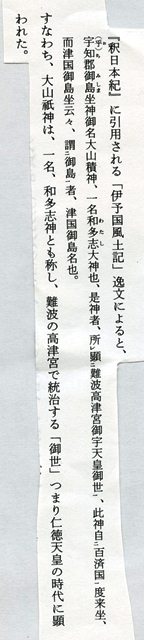 『釈日本紀』に引用される「伊予国風土記」逸文によると、
宇知郡御島坐神御名大山積神、一名和多志大神也、是神者、所㆑顕㆓難波高津宮御宇天皇御世㆒、此神自㆓百済国㆒度来坐、
而津国御島坐云々、謂㆓御島㆒者、津国御島名也。
すなわち、大山祇神は、一名、和多志神とも称し、難波の高津宮で統治する「御世」つまり仁徳天皇の時代に顕
われた。